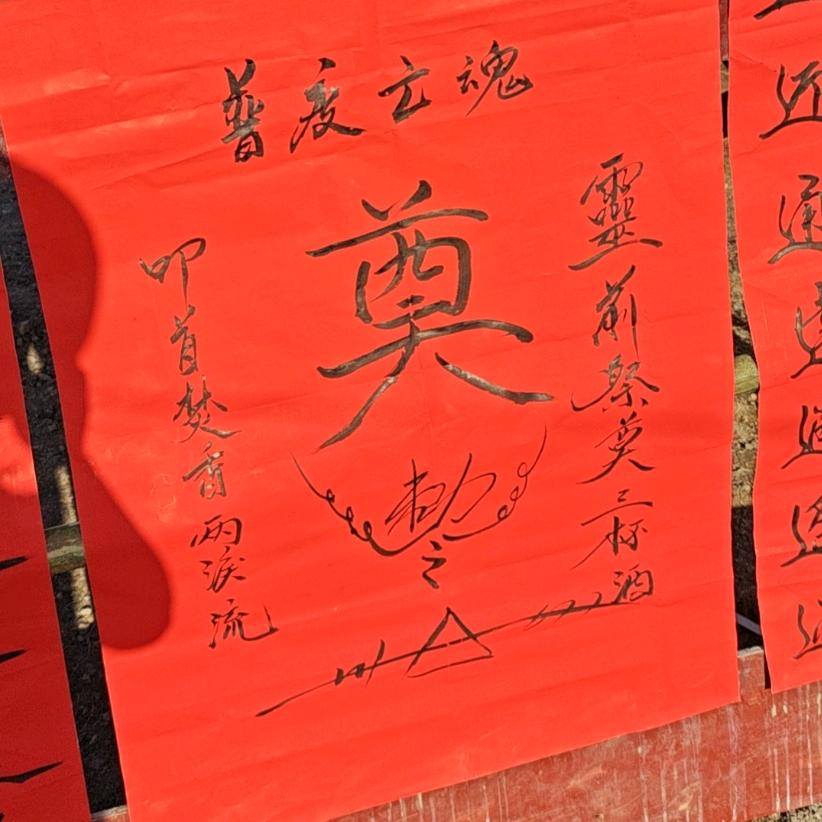 普度亡魂
靈前祭奠三杯酒
奠
勅
叩首焚香兩淚流
近